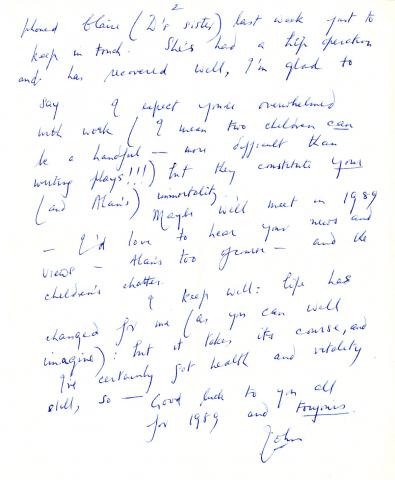 2
phoned Claire (D's sister) last week just to
keep in touch. She's had a hip operation
and has recovered well, I'm glad to
say I expect you're overwhelmed
with work (I mean two children can
be a handful — more difficult than
writing plays!!!) but they constitute your
(and Alan's) immortality.
Maybe we'll meet in 1989
— I'd love to hear your news and
views — Alan's too of course — and the
children's chatter.
I keep well: life has
changed for me (as you can well
imagine): but it takes its course, and
I've certainly got health and vitality
still, so — Good luck to you all
for 1989 and toujours.
John